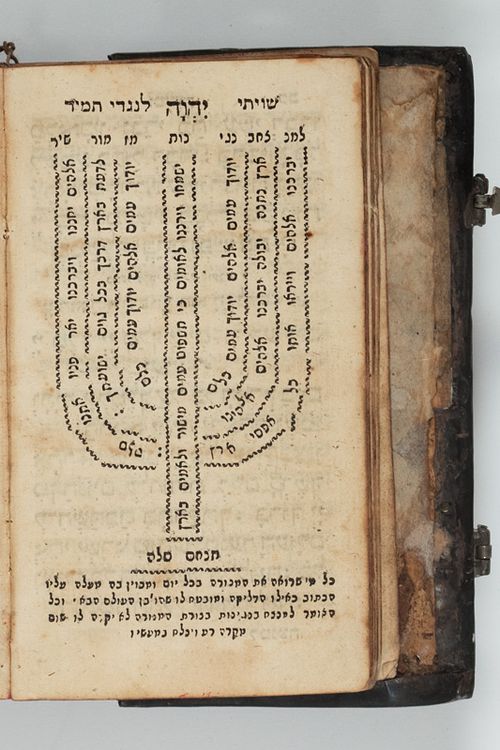 שויתי יְהֹוָה לנגדי תמיד
למנ צחב נגי נות מז מור שיר
יברכנו אלהים וייראו אותו כל אפסי ארץ
ארץ נתנה יבולה יברכנו אלהים אלהינו
יודוך עמים אלהים יודוך עמים כלם
ישמחו וירננו לאומים כי תשפוט עמים מישור ולאמים בארץ
יודוך עמים אלהים יודוך עמים כלם
לדעת בארץ דרכך בכל גוים ישועתך:
אלהים יחננו ויברכנו יאר פניו אתנו סלה
תנחם סלה
כל מי שרואה את המנורה בכל יום ומכוין בה מעלה עליו
הכתוב כאילו הדליקה ומובטח לו שהו' בן העולם הבא' וכל
האומר למנצח בנגינות בצורת המנורה לא יקרה לו שום
מקרה רע ויצלח במעשיו